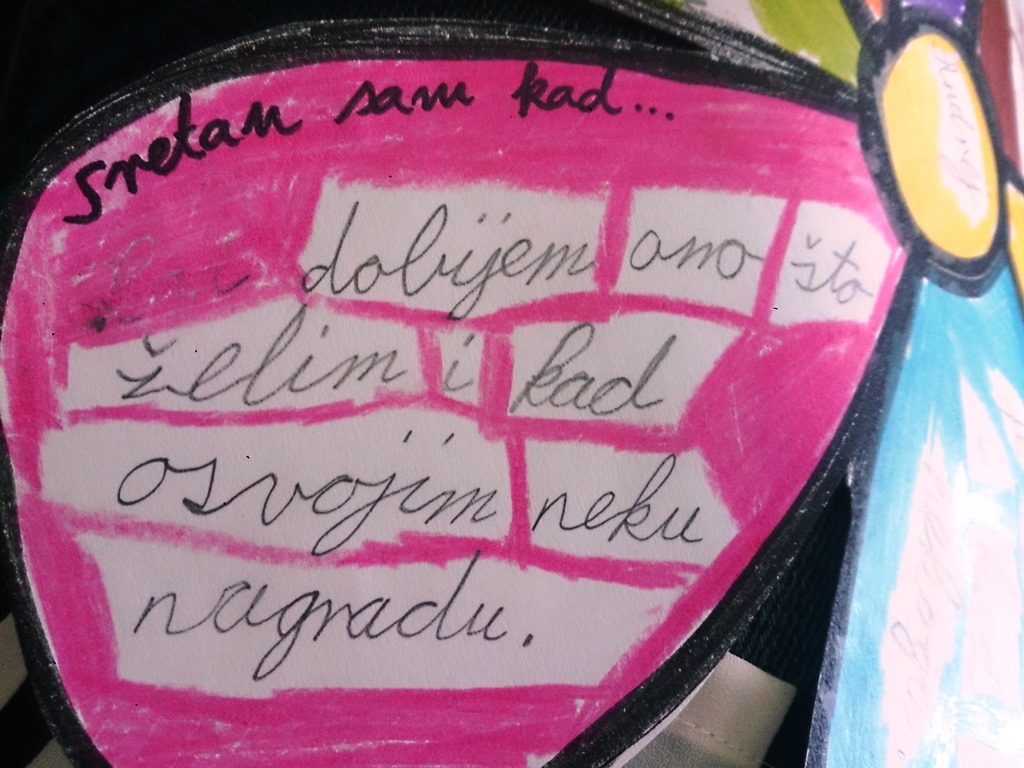 Sretan sam kad...
dobijem ono što
želim i kad
osvojim neku
nagradu.